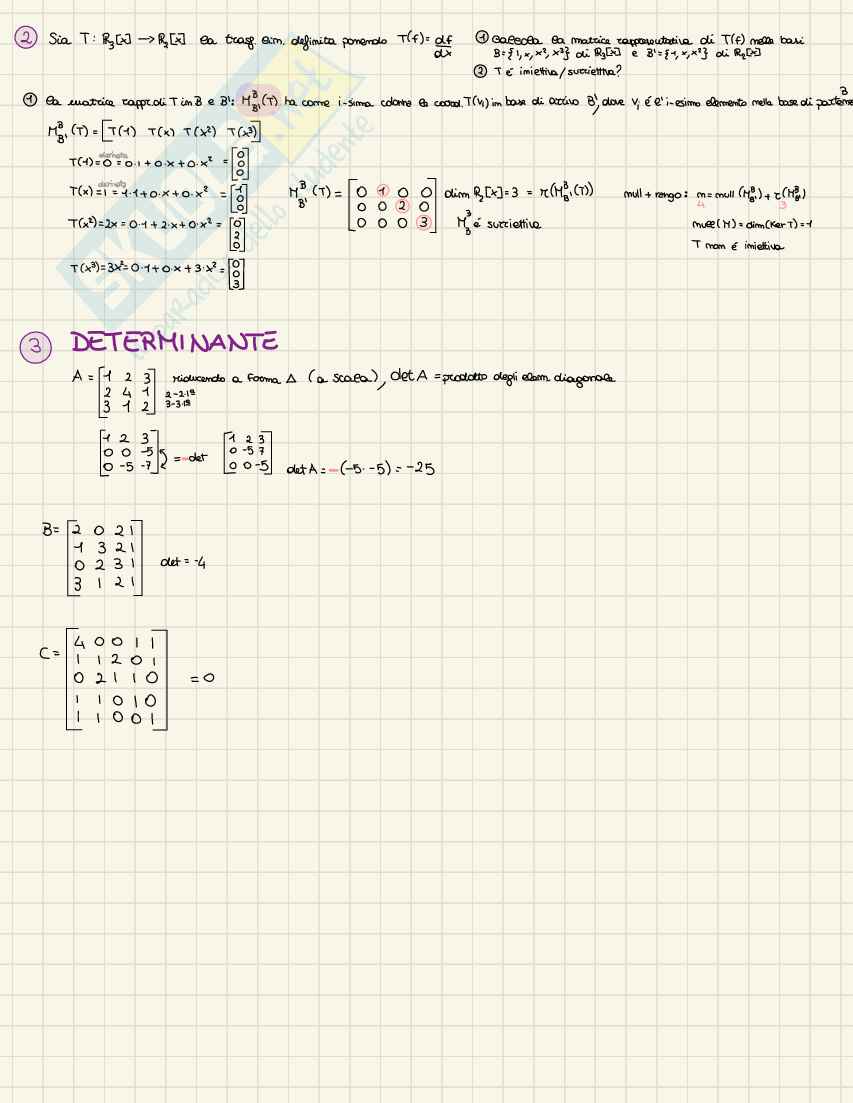 2 Sia T: R₃[x] → R₂[x] la trasf. lin. definita ponendo T(f) = df/dx
① Calcola la matrice rappresentativa di T(f) nelle basi
B={1, x, x², x³} di R₃[x] e B'={1, x, x²} di R₂[x]
② T è iniettiva/suriettiva?
① la matrice rappr. di T in B e B': M^B_B'(T) ha come i-sima colonna le coord. T(vᵢ) in base di arrivo B', dove vᵢ è l'i-esimo elemento nella base di partenza B
M^B_B'(T) = [T(1) T(x) T(x²) T(x³)]
derivata
T(1)=0 = 0·1+0·x+0·x² = [0 0 0]
derivata
T(x)=1 = 1·1+0·x+0·x² = [1 0 0]
T(x²)=2x = 0·1+2·x+0·x² = [0 2 0]
T(x³)=3x²=0·1+0·x+3·x² = [0 0 3]
M^B_B'(T) = [0 1 0 0
0 0 2 0
0 0 0 3]
dim R₂[x]=3 = r(M^B_B'(T))
M^B_B è suriettiva
null + rango: n = null(M^B_B') + r(M^B_B')
4 3
null(M) = dim(Ker T) = 1
T non è iniettiva
SKUOLA.net
il paradiso dello studente
3 DETERMINANTE
A = [1 2 3
2 4 1
3 1 2]
2-2·1ª
3-3·1ª
riducendo a forma Δ (a scala), det A = prodotto degli elem diagonale
[1 2 3
0 0 -5
0 -5 -7]
= -det
[1 2 3
0 -5 7
0 0 -5]
det A = -(-5·-5) = -25
B = [2 0 2 1
1 3 2 1
0 2 3 1
3 1 2 1]
det = -4
C = [4 0 0 1 1
1 1 2 0 1
0 2 1 1 0
1 1 0 1 0
1 1 0 0 1]
= 0